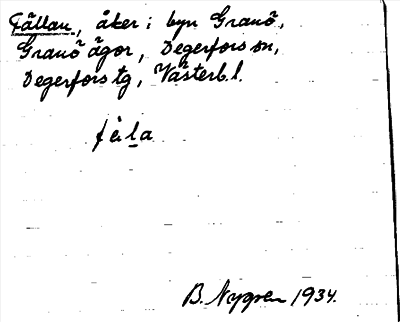 Fällan, åker i byn Granö,
Granö ägor, Degerfors sn,
Degerfors tg, Västerb. l.
fèla
B. Nygren 1934.